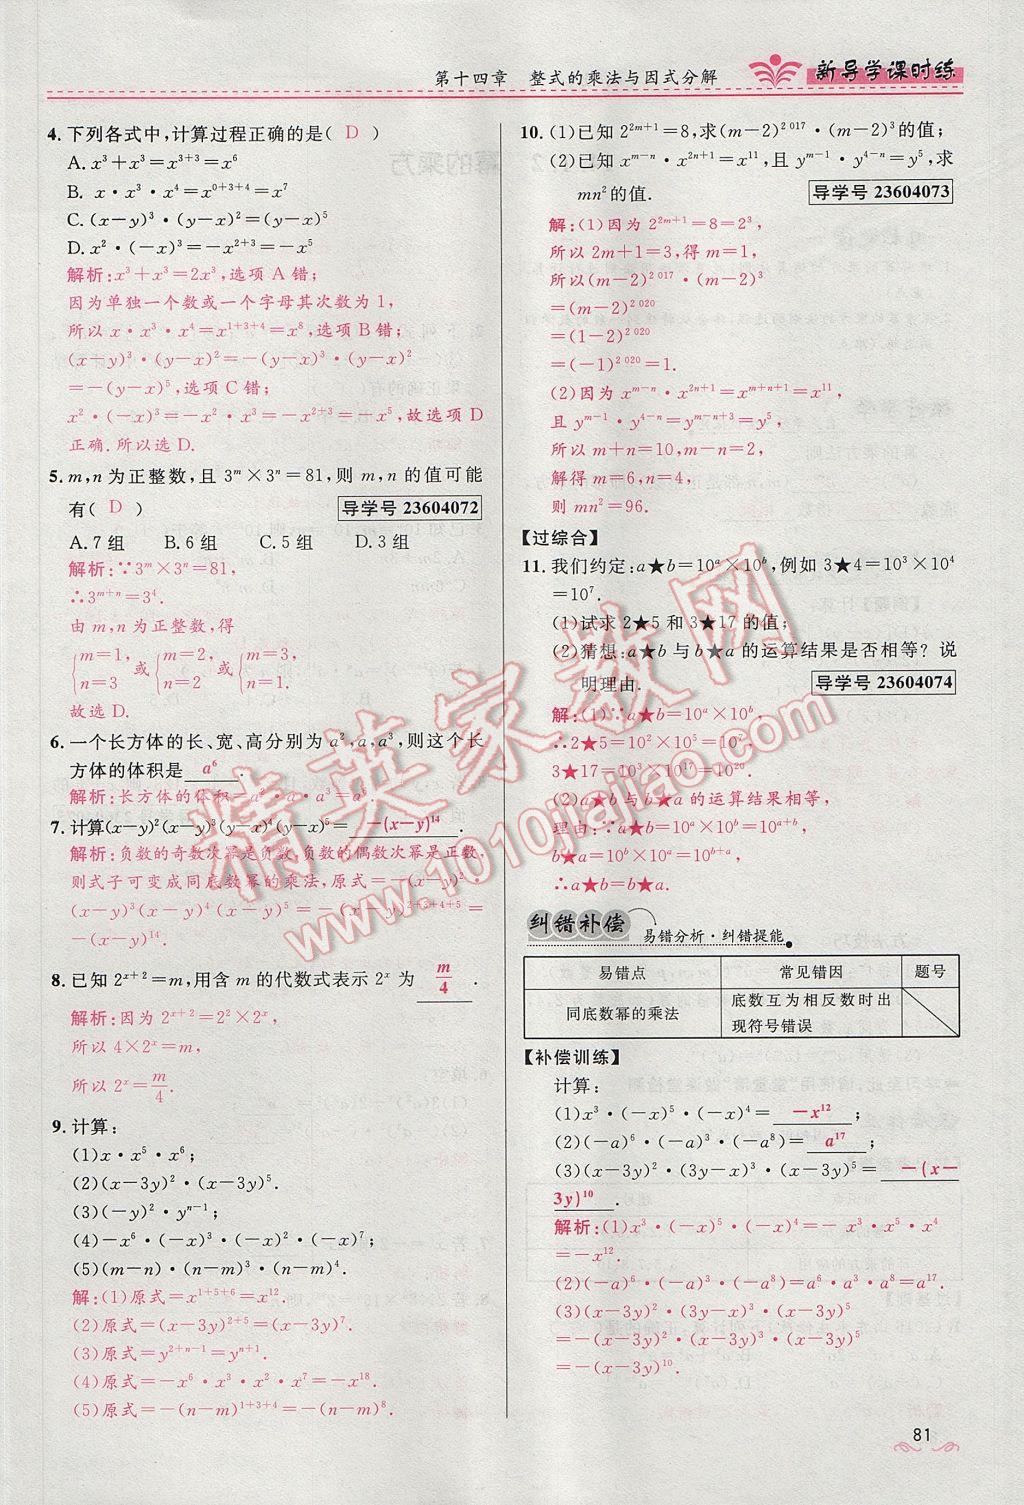 第十四章 整式的乘法与因式分解
新导学课时练
4. 下列各式中,计算过程正确的是( D )
A. x³+x³=x³⁺³=x⁶
B. x·x³·x⁴=x⁰⁺³⁺⁴=x⁷
C. (x-y)³·(y-x)²=(y-x)⁵
D. x²·(-x)³=-x²⁺³=-x⁵
解析:x³+x³=2x³,选项A错;
因为单独一个数或一个字母其次数为1,
所以x·x³·x⁴=x¹⁺³⁺⁴=x⁸,选项B错;
(x-y)³·(y-x)²=-(y-x)³·(y-x)²
=-(y-x)⁵,选项C错;
x²·(-x)³=-x²·x³=-x²⁺³=-x⁵,故选项D
正确.所以选D.
5. m,n为正整数,且3ᵐ×3ⁿ=81,则m,n的值可能
有( D ) 导学号 23604072
A.7组 B.6组 C.5组 D.3组
解析:∵3ᵐ×3ⁿ=81,
∴3ᵐ⁺ⁿ=3⁴.
由m,n为正整数,得
{m=1, n=3 或 {m=2, n=2 或 {m=3, n=1.
故选D.
6. 一个长方体的长、宽、高分别为a²,a,a³,则这个长
方体的体积是 a⁶ .
解析:长方体的体积=a²·a·a³=a⁶.
7. 计算(x-y)²(x-y)³(y-x)⁴(y-x)⁵= -(x-y)¹⁴ .
解析:负数的奇数次幂是负数,负数的偶数次幂是正数,
则式子可变成同底数幂的乘法,原式=-(x-y)²
(x-y)³(x-y)⁴(x-y)⁵=-(x-y)²⁺³⁺⁴⁺⁵=
-(x-y)¹⁴.
8. 已知2ˣ⁺²=m,用含m的代数式表示2ˣ为 m/4 .
解析:因为2ˣ⁺²=2²×2ˣ,
所以4×2ˣ=m,
所以2ˣ=m/4.
9. 计算:
(1)x·x⁵·x⁶;
(2)(x-3y)²·(x-3y)⁵.
(3)(-y)²·yⁿ⁻¹;
(4)-x⁶·(-x)³·(-x)²·(-x)⁷;
(5)(m-n)·(n-m)³·(n-m)⁴.
解:(1)原式=x¹⁺⁵⁺⁶=x¹².
(2)原式=(x-3y)²⁺⁵=(x-3y)⁷.
(3)原式=y²⁺ⁿ⁻¹=yⁿ⁺¹.
(4)原式=-x⁶·x³·x²·x⁷=-x¹⁸.
(5)原式=-(n-m)¹⁺³⁺⁴=-(n-m)⁸.
10. (1)已知2²ᵐ⁺¹=8,求(m-2)²⁰¹⁷·(m-2)³的值;
(2)已知xᵐ⁻ⁿ·x²ⁿ⁺¹=x¹¹,且yᵐ⁻¹·y⁴⁻ⁿ=y⁵,求
mn²的值. 导学号 23604073
解:(1)因为2²ᵐ⁺¹=8=2³,
所以2m+1=3,得m=1,
所以(m-2)²⁰¹⁷·(m-2)³
=(m-2)²⁰²⁰
=(1-2)²⁰²⁰
=(-1)²⁰²⁰=1.
(2)因为xᵐ⁻ⁿ·x²ⁿ⁺¹=xᵐ⁺ⁿ⁺¹=x¹¹,
且yᵐ⁻¹·y⁴⁻ⁿ=yᵐ⁻ⁿ⁺³=y⁵,
所以m+n=10,m-n=2,
解得m=6,n=4,
则mn²=96.
【过综合】
11. 我们约定:a★b=10ᵃ×10ᵇ,例如3★4=10³×10⁴
=10⁷.
(1)试求2★5和3★17的值;
(2)猜想:a★b与b★a的运算结果是否相等?说
明理由. 导学号 23604074
解:(1)∵a★b=10ᵃ×10ᵇ,
∴2★5=10²×10⁵=10⁷,
3★17=10³×10¹⁷=10²⁰.
(2)a★b与b★a的运算结果相等,
理由:∵a★b=10ᵃ×10ᵇ=10ᵃ⁺ᵇ,
b★a=10ᵇ×10ᵃ=10ᵇ⁺ᵃ,
∴a★b=b★a.
纠错补偿 易错分析·纠错提能
易错点 常见错因 题号
同底数幂的乘法 底数互为相反数时出
现符号错误
【补偿训练】
计算:
(1)x³·(-x)⁵·(-x)⁴= -x¹² ;
(2)(-a)⁶·(-a)³·(-a⁸)= a¹⁷ ;
(3)(x-3y)²·(3y-x)³·(x-3y)⁵= -(x-
3y)¹⁰ .
解析:(1)x³·(-x)⁵·(-x)⁴=-x³·x⁵·x⁴
=-x¹².
(2)(-a)⁶·(-a)³·(-a⁸)=a⁶·a³·a⁸=a¹⁷.
(3)(x-3y)²·(3y-x)³·(x-3y)⁵
=-(x-3y)²·(x-3y)³·(x-3y)⁵
=-(x-3y)¹⁰.
81
精英家教网
www.1010jiajiao.com